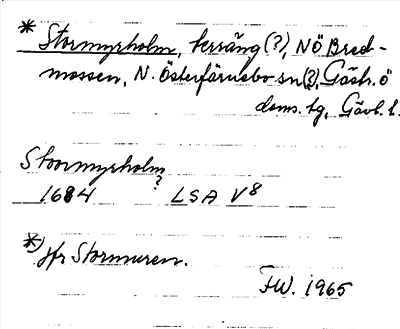 * Stormyrholm, terräng (?), NÖ Bred-
mossen, N. Österfärnebo sn (?), Gästr. ö
doms. tg, Gävl. l.
Stoormyrholm
?
1684 LSA V8
*) jfr Stormuren.
FW. 1965